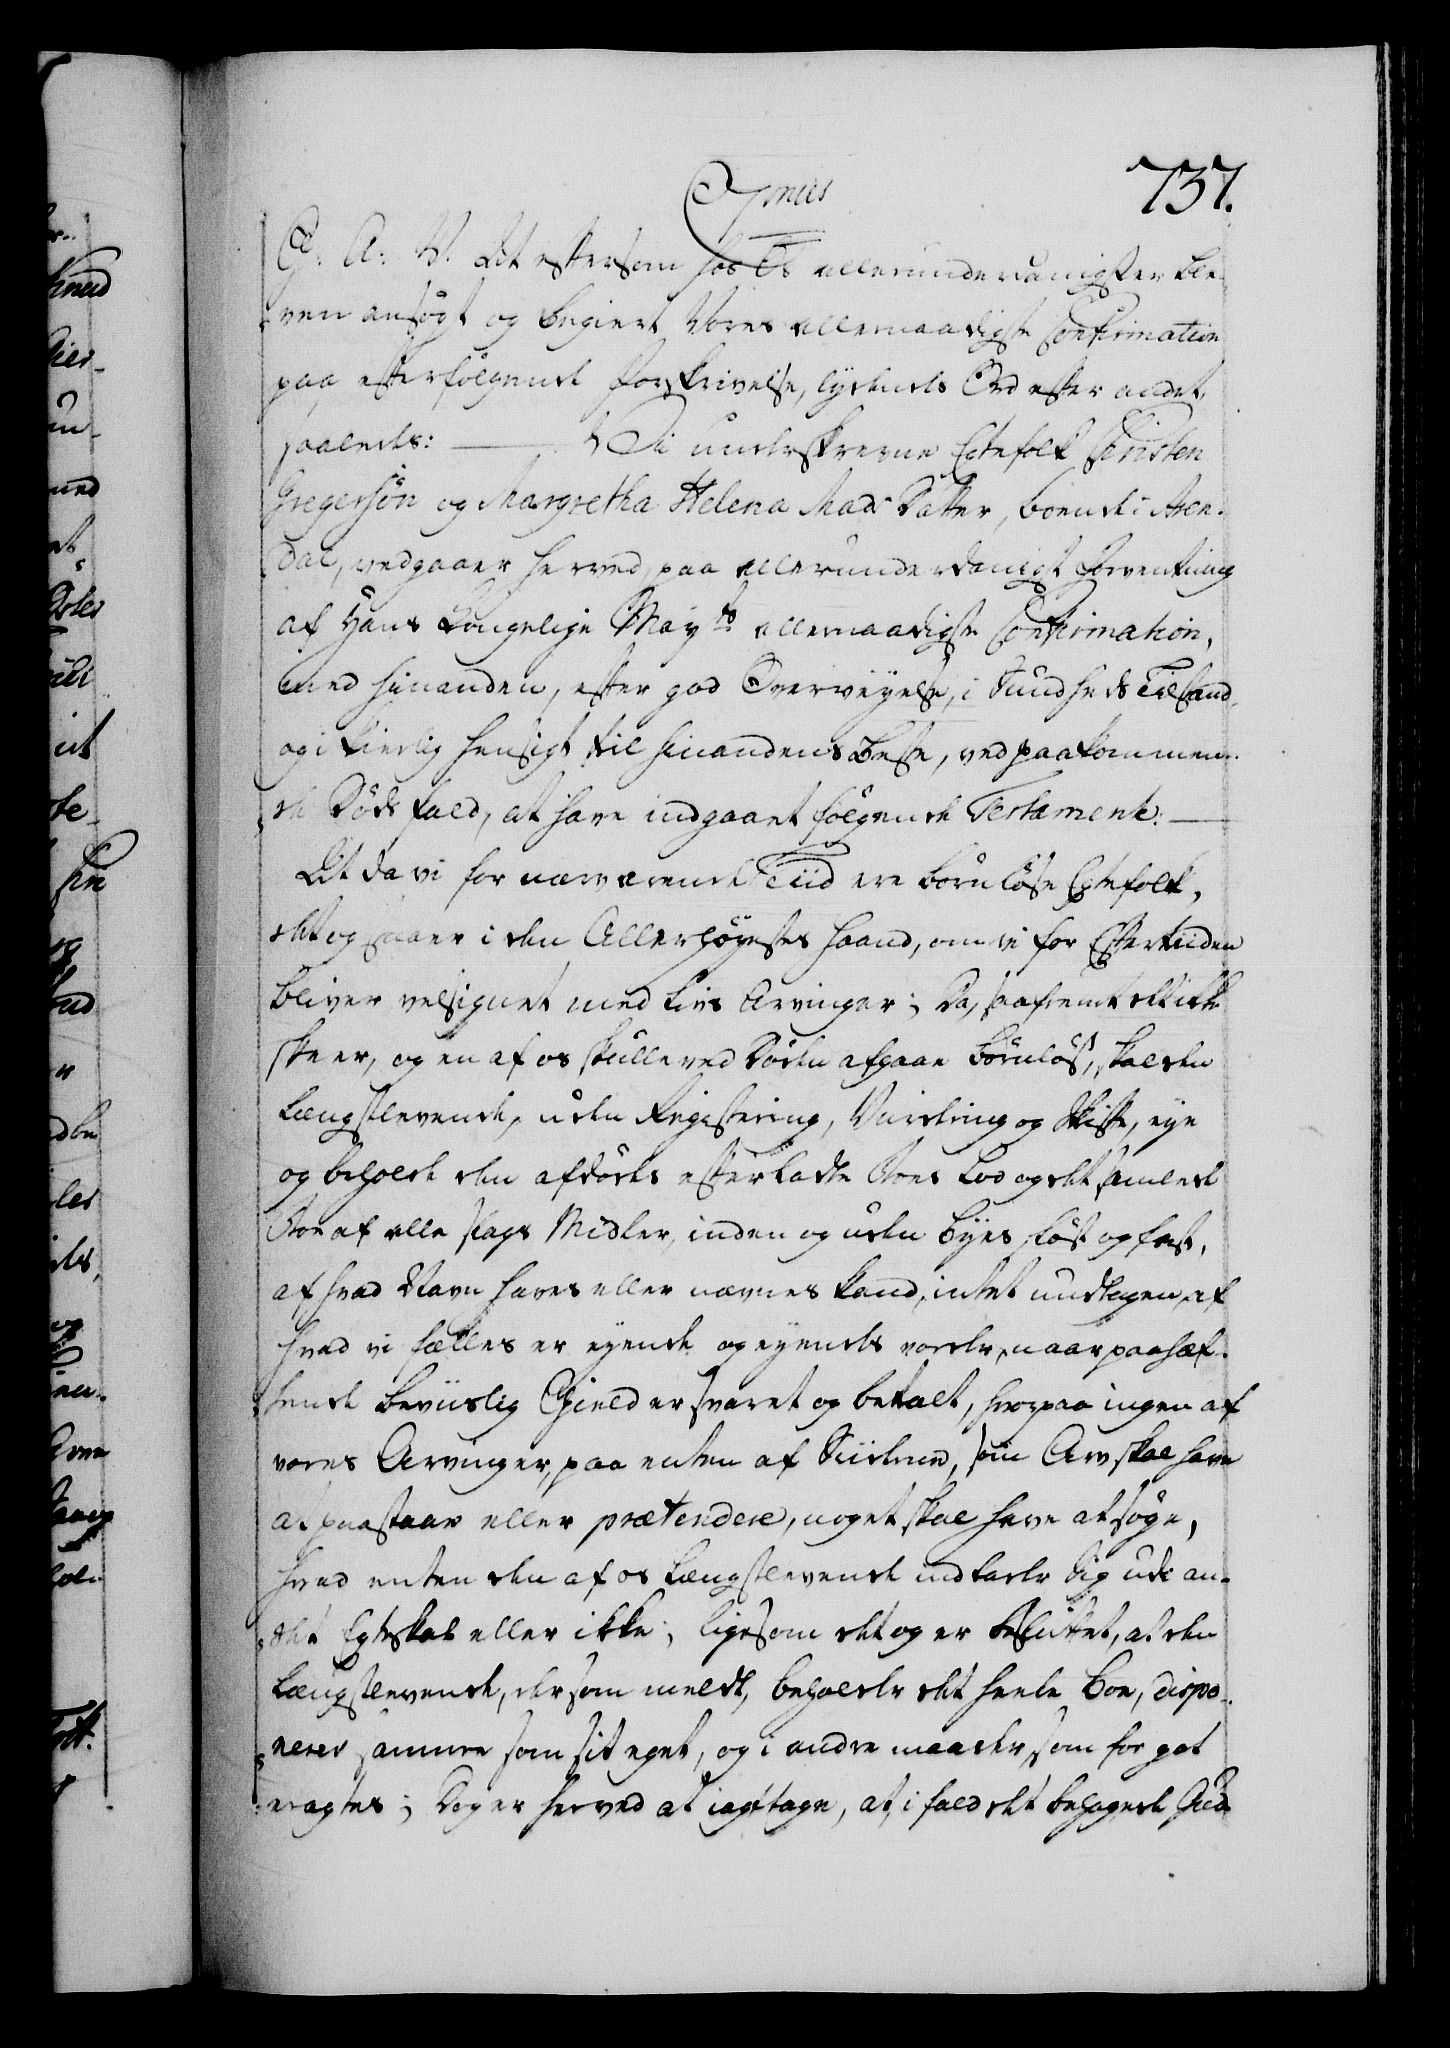 737.
G: A: V. At eftersom hos Os allerunderdanigst er ble-
ven ansøgt og begiert Vores allernaadigste Confirmation
paa efterfølgende forskrivelse, lydende Ord efter andet,
saaledes: Vi underskrevne Egtefolk Christen
Gregersøn og Margretha Helena Mads Datter, boende i Aren-
dal, vedgaaer herved, paa allerunderdanigst Forventning
af Hans Kongelige Mayts allernaadigste Confirmation,
med hinanden, efter god Overveyelse, i Sundheds Tilstand,
og i kierlig hensigt til hinandens beste, ved paakommen-
de Dødsfald, at have indgaaet følgende Testamente:
At da vi for nærværende Tiid ere barnløse Egtefolk,
det og staaer i den Allerhøyestes haand, om vi for Eftertiden
bliver velsignet med Livs Arvinger; Da, saafremt det ikke
skeer, og en af os skulle ved Døden afgaae barnløs, skal den
Længstlevende, uden Registering, Vurdering og Skifte, eye
og beholde den afdødes efterladte Boes Lod og det samlede
Boe af alle slags Midler, inden og uden Byes, løst og fast,
af hvad Navn haves eller nævnes kand, intet undtagen, af
hvad vi fælles er eyende og eyendes vorder, naar paahæf-
tende beviislig Gield er svaret og betalt, hvorpaa ingen af
vores Arvinger, paa enten af Siiderne, som Arv skal have
at paastaae eller prætendere, noget skal have at søge,
hvad enten den af os Længstlevende indlader sig udi an-
det Egteskab eller ikke; ligesom det og er besluttet, at den
Længstlevende, der som meldt, beholder det heele Boe, dispo-
nerer samme som sit eget, og i andre maader, som for got
eragtes; Dog er herved at iagttage, at, i fald det behagede Gud